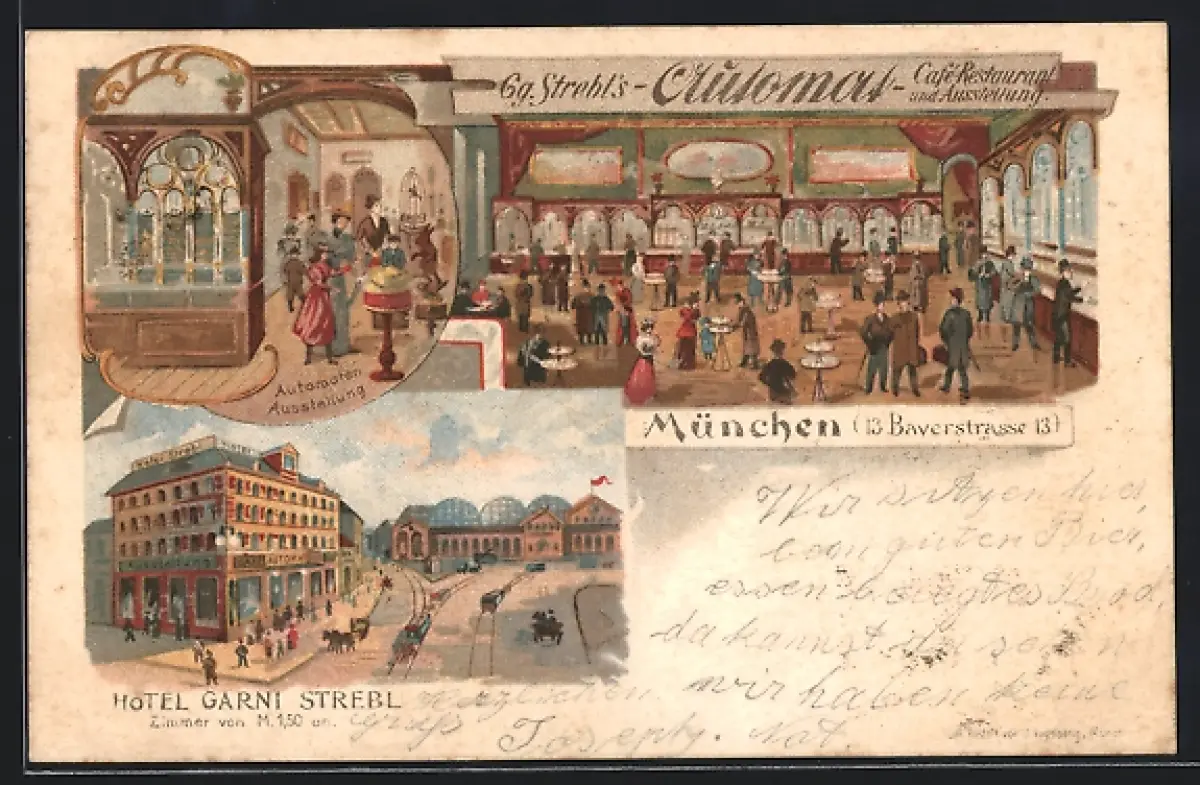 Gg. Strebl's - Automat - Café-Restaurant
und Ausstellung.
Automaten
Ausstellung
München (13 Bayerstrasse 13)
HOTEL GARNI STREBL
Zimmer von M. 1,50 an.
Wir sitzen hier
beim guten Bier,
essen belegtes Brod,
da kannst du sehen
wir haben keine
Not.
Herzlichen
Gruß Joseph.